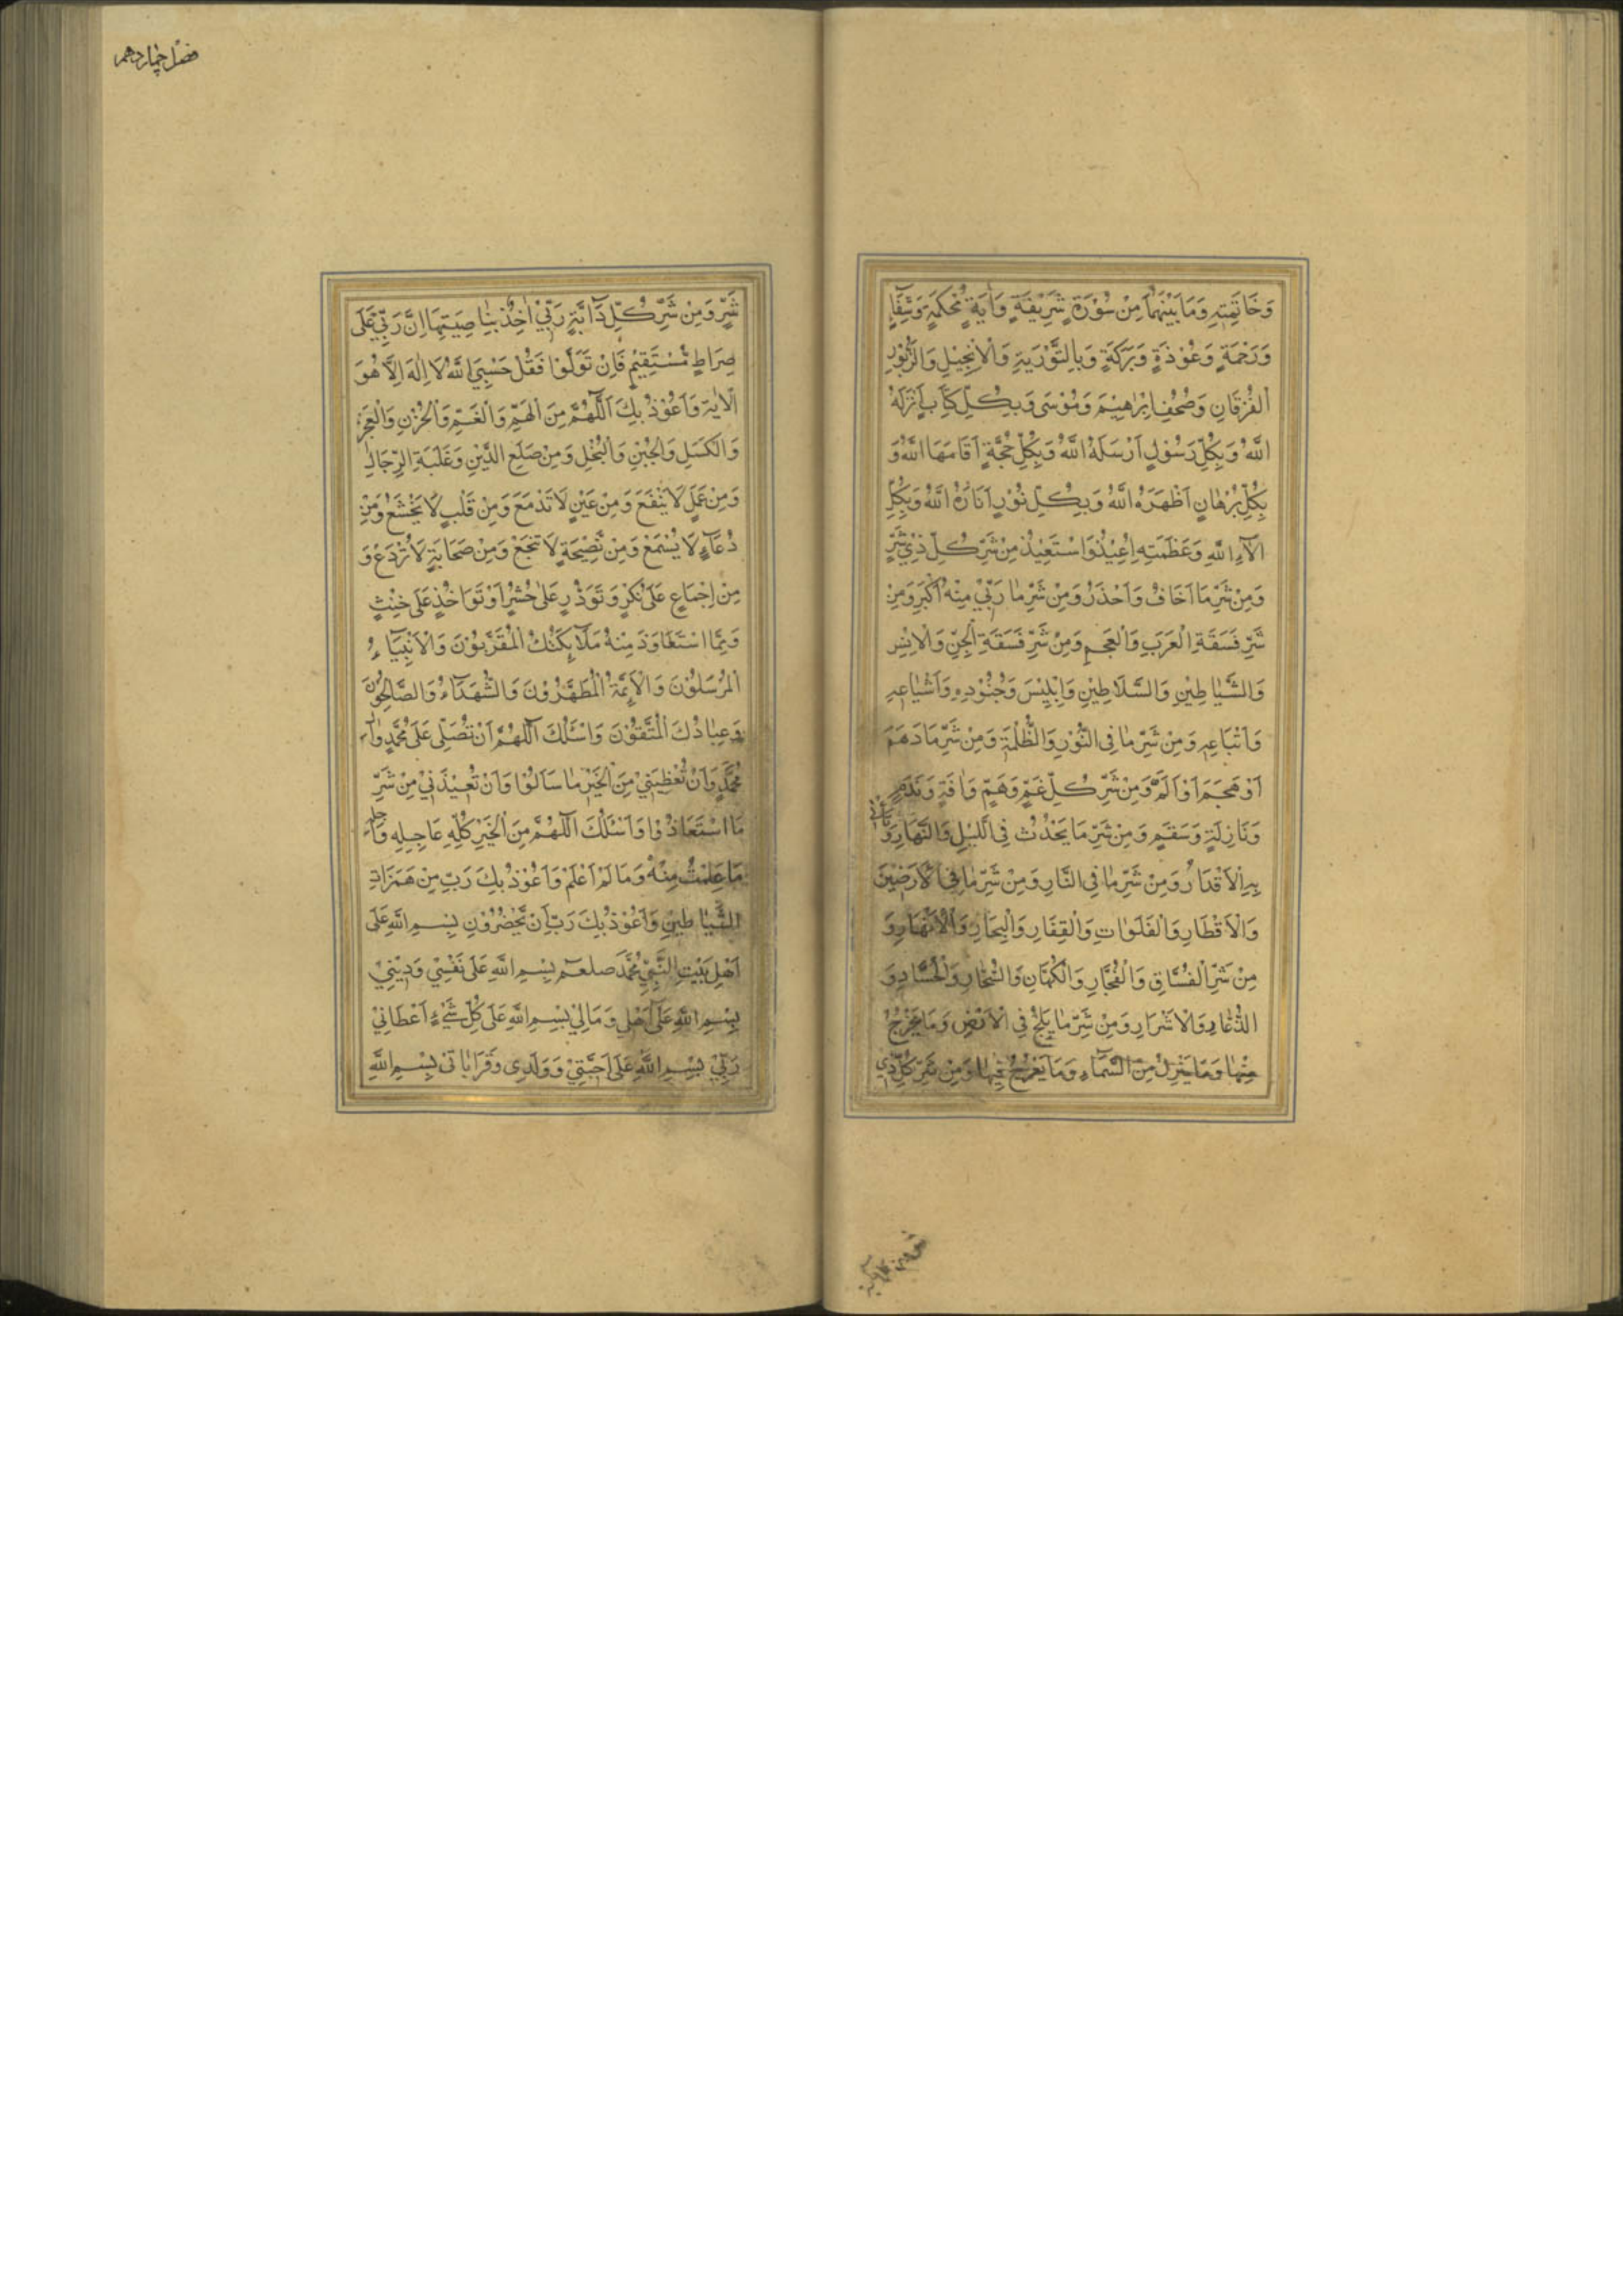 وَخَاتِمَتِهِ وَمَا بَيْنَهُمَا مِنْ سُوْرَةٍ شَرِيْفَةٍ وَاٰيَةٍ مُحْكَمَةٍ وَشِفَآءٍ
وَرَحْمَةٍ وَعُوْذَةٍ وَبَرَكَةٍ وَبِالتَّوْرٰيةِ وَالْاِنْجِيْلِ وَالزَّبُوْرِ
الْفُرْقَانِ وَصُحُفِ اِبْرٰاهِيْمَ وَمُوْسٰى وَبِكُلِّ كِتَابٍ اَنْزَلَهُ
اللّٰهُ وَبِكُلِّ رَسُوْلٍ اَرْسَلَهُ اللّٰهُ وَبِكُلِّ حُجَّةٍ اَقَامَهَا اللّٰهُ وَ
بِكُلِّ بُرْهَانٍ اَظْهَرَهُ اللّٰهُ وَبِكُلِّ نُوْرٍ اَنَارَهُ اللّٰهُ وَبِكُلِّ
اٰلَآءِ اللّٰهِ وَعَظَمَتِهِ اُعِيْذُ وَاَسْتَعِيْذُ مِنْ شَرِّ كُلِّ ذِيْ شَرٍّ
وَمِنْ شَرِّ مَا اَخَافُ وَاَحْذَرُ وَمِنْ شَرِّ مٰا رَبِّيْ مِنْهُ اَكْبَرُ وَمِنْ
شَرِّ فَسَقَةِ الْعَرَبِ وَالْعَجَمِ وَمِنْ شَرِّ فَسَقَةِ الْجِنِّ وَالْاِنْسِ
وَالشَّيٰاطِيْنِ وَالسَّلَاطِيْنِ وَاِبْلِيْسَ وَجُنُوْدِهِ وَاَشْيٰاعِهِ
وَاَتْبَاعِهِ وَمِنْ شَرِّ مٰا فِى النُّوْرِ وَالظُّلْمَةِ وَمِنْ شَرِّ مَا دَهَمَ
اَوْ هَجَمَ اَوْ اَلَمَّ وَمِنْ شَرِّ كُلِّ غَمٍّ وَهَمٍّ وَاٰفَةٍ وَنَدَمٍ
وَنَازِلَةٍ وَسَقَمٍ وَمِنْ شَرِّ مَا يَحْدُثُ فِى اللَّيْلِ وَالنَّهَارِ وَتَأْتِيْ
بِهِ الْاَقْدَارُ وَمِنْ شَرِّ مٰا فِى النَّارِ وَمِنْ شَرِّ مٰا فِى الْاَرَضِيْنَ
وَالْاَقْطَارِ وَالْفَلَوٰاتِ وَالْقِفَارِ وَالْبِحَارِ وَالْاَنْهَارِ وَ
مِنْ شَرِّ الْفُسَّاقِ وَالْفُجَّارِ وَالْكُهَّانِ وَالسُّحَّارِ وَالْحُسَّادِ وَ
الذُّعَّارِ وَالْاَشْرَارِ وَمِنْ شَرِّ مٰا يَلِجُ فِى الْاَرْضِ وَمَا يَخْرُجُ
مِنْهٰا وَمَا يَنْزِلُ مِنَ السَّمَآءِ وَمَا يَعْرُجُ فِيْهٰا وَمِنْ شَرِّ كُلِّ ذِيْ
فصل چهاردهم
شَرٍّ وَمِنْ شَرِّ كُلِّ دَآبَّةٍ رَبِّيْ اٰخِذٌ بِنٰاصِيَتِهَا اِنَّ رَبِّيْ عَلٰى
صِرَاطٍ مُسْتَقِيْمٍ فَاِنْ تَوَلَّوْا فَقُلْ حَسْبِيَ اللّٰهُ لَا اِلٰهَ اِلَّا هُوَ
الْاٰيَة وَاَعُوْذُ بِكَ اَللّٰهُمَّ مِنَ الْهَمِّ وَالْغَمِّ وَالْحُزْنِ وَالْعَجْزِ
وَالْكَسَلِ وَالْجُبْنِ وَالْبُخْلِ وَمِنْ ضَلَعِ الدَّيْنِ وَغَلَبَةِ الرِّجَالِ
وَمِنْ عَمَلٍ لَا يَنْفَعُ وَمِنْ عَيْنٍ لَا تَدْمَعُ وَمِنْ قَلْبٍ لَا يَخْشَعُ وَمِنْ
دُعَآءٍ لَا يُسْمَعُ وَمِنْ نَصِيْحَةٍ لَا تَنْجَعُ وَمِنْ صَحَابَةٍ لَا تَرْدَعُ وَ
مِنْ اِجْمَاعٍ عَلٰى نُكْرٍ وَتَوَدُّدٍ عَلٰى خُسْرٍ اَوْ تَوٰاخُذٍ عَلٰى خُبْثٍ
وَمِمَّا اسْتَعَاذَ مِنْهُ مَلَآئِكَتُكَ الْمُقَرَّبُوْنَ وَالْاَنْبِيَآءُ
الْمُرْسَلُوْنَ وَالْاَئِمَّةُ الْمُطَهَّرُوْنَ وَالشُّهَدَآءُ وَالصَّالِحُوْنَ
وَعِبٰادُكَ الْمُتَّقُوْنَ وَاَسْئَلُكَ اَللّٰهُمَّ اَنْ تُصَلِّيَ عَلٰى مُحَمَّدٍ وَاٰلِ
مُحَمَّدٍ وَاَنْ تُعْطِيَنِيْ مِنَ الْخَيْرِ مٰا سَاَلُوْا وَاَنْ تُعِيْذَنِيْ مِنْ شَرِّ
مَا اسْتَعَاذُوْا وَاَسْئَلُكَ اَللّٰهُمَّ مِنَ الْخَيْرِ كُلِّهِ عَاجِلِهِ وَاٰجِلِهِ
مَا عَلِمْتُ مِنْهُ وَمَا لَمْ اَعْلَمْ وَاَعُوْذُ بِكَ رَبِّ مِنْ هَمَزَاتِ
الشَّيٰاطِيْنِ وَاَعُوْذُ بِكَ رَبِّ اَنْ يَحْضُرُوْنِ بِسْمِ اللّٰهِ عَلٰى
اَهْلِ بَيْتِ النَّبِيِّ مُحَمَّدَ صلعم بِسْمِ اللّٰهِ عَلٰى نَفْسِيْ وَدِيْنِيْ
بِسْمِ اللّٰهِ عَلٰى اَهْلِى وَمَالِيْ بِسْمِ اللّٰهِ عَلٰى كُلِّ شَيْءٍ اَعْطَانِيْ
رَبِّيْ بِسْمِ اللّٰهِ عَلٰى اَحِبَّتِيْ وَوَلَدِى وَقَرَابٰاتى بِسْمِ اللّٰهِ